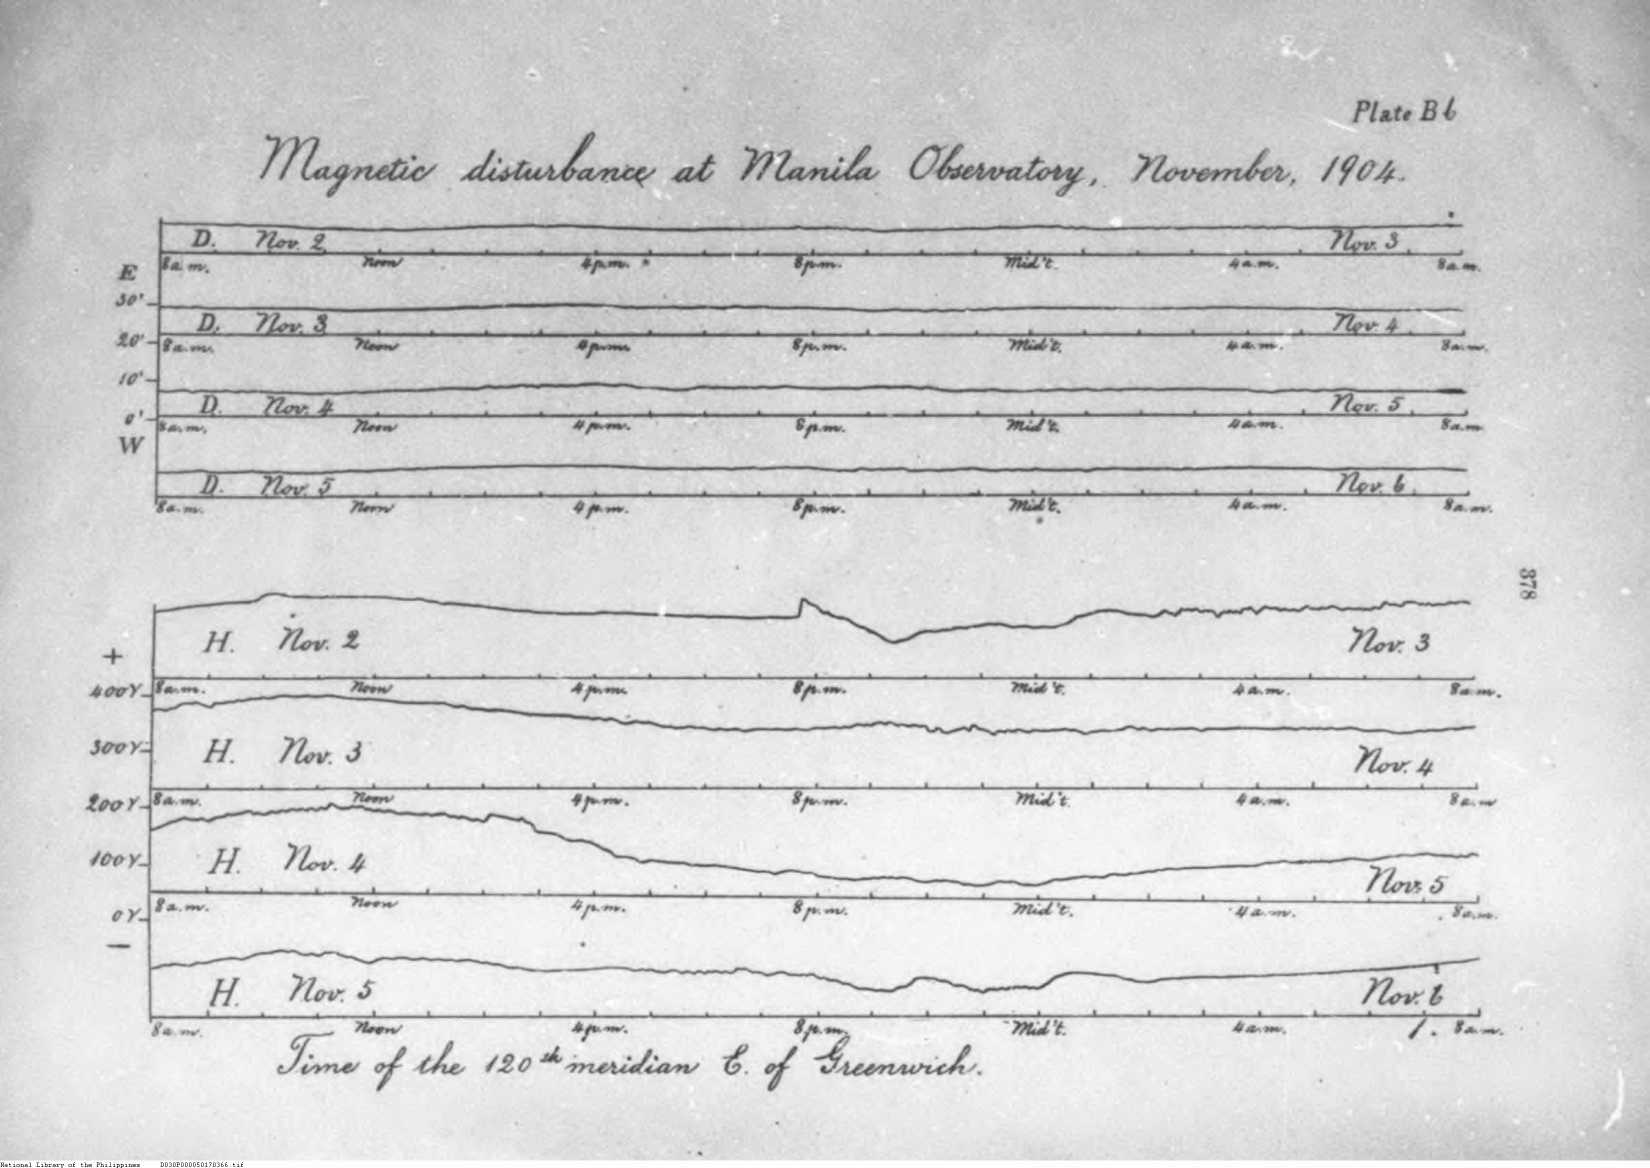 Plate B6
Magnetic disturbance at Manila Observatory, November, 1904.
D. Nov. 2 Nov. 3
8 a.m. Noon 4 p.m. 8 p.m. Mid't. 4 a.m. 8 a.m.
E
30'
D. Nov. 3 Nov. 4
20'
8 a.m. Noon 4 p.m. 8 p.m. Mid't. 4 a.m. 8 a.m.
10'
D. Nov. 4 Nov. 5
0'
8 a.m. Noon 4 p.m. 8 p.m. Mid't. 4 a.m. 8 a.m.
W
D. Nov. 5 Nov. 6
8 a.m. Noon 4 p.m. 8 p.m. Mid't. 4 a.m. 8 a.m.
378
H. Nov. 2 Nov. 3
+
400γ 8 a.m. Noon 4 p.m. 8 p.m. Mid't. 4 a.m. 8 a.m.
300γ H. Nov. 3 Nov. 4
200γ 8 a.m. Noon 4 p.m. 8 p.m. Mid't. 4 a.m. 8 a.m.
100γ H. Nov. 4 Nov. 5
0γ 8 a.m. Noon 4 p.m. 8 p.m. Mid't. 4 a.m. 8 a.m.
—
H. Nov. 5 Nov. 6
8 a.m. Noon 4 p.m. 8 p.m. Mid't. 4 a.m. 8 a.m.
Time of the 120th meridian E. of Greenwich.
National Library of the Philippines D030P000050170366.tif